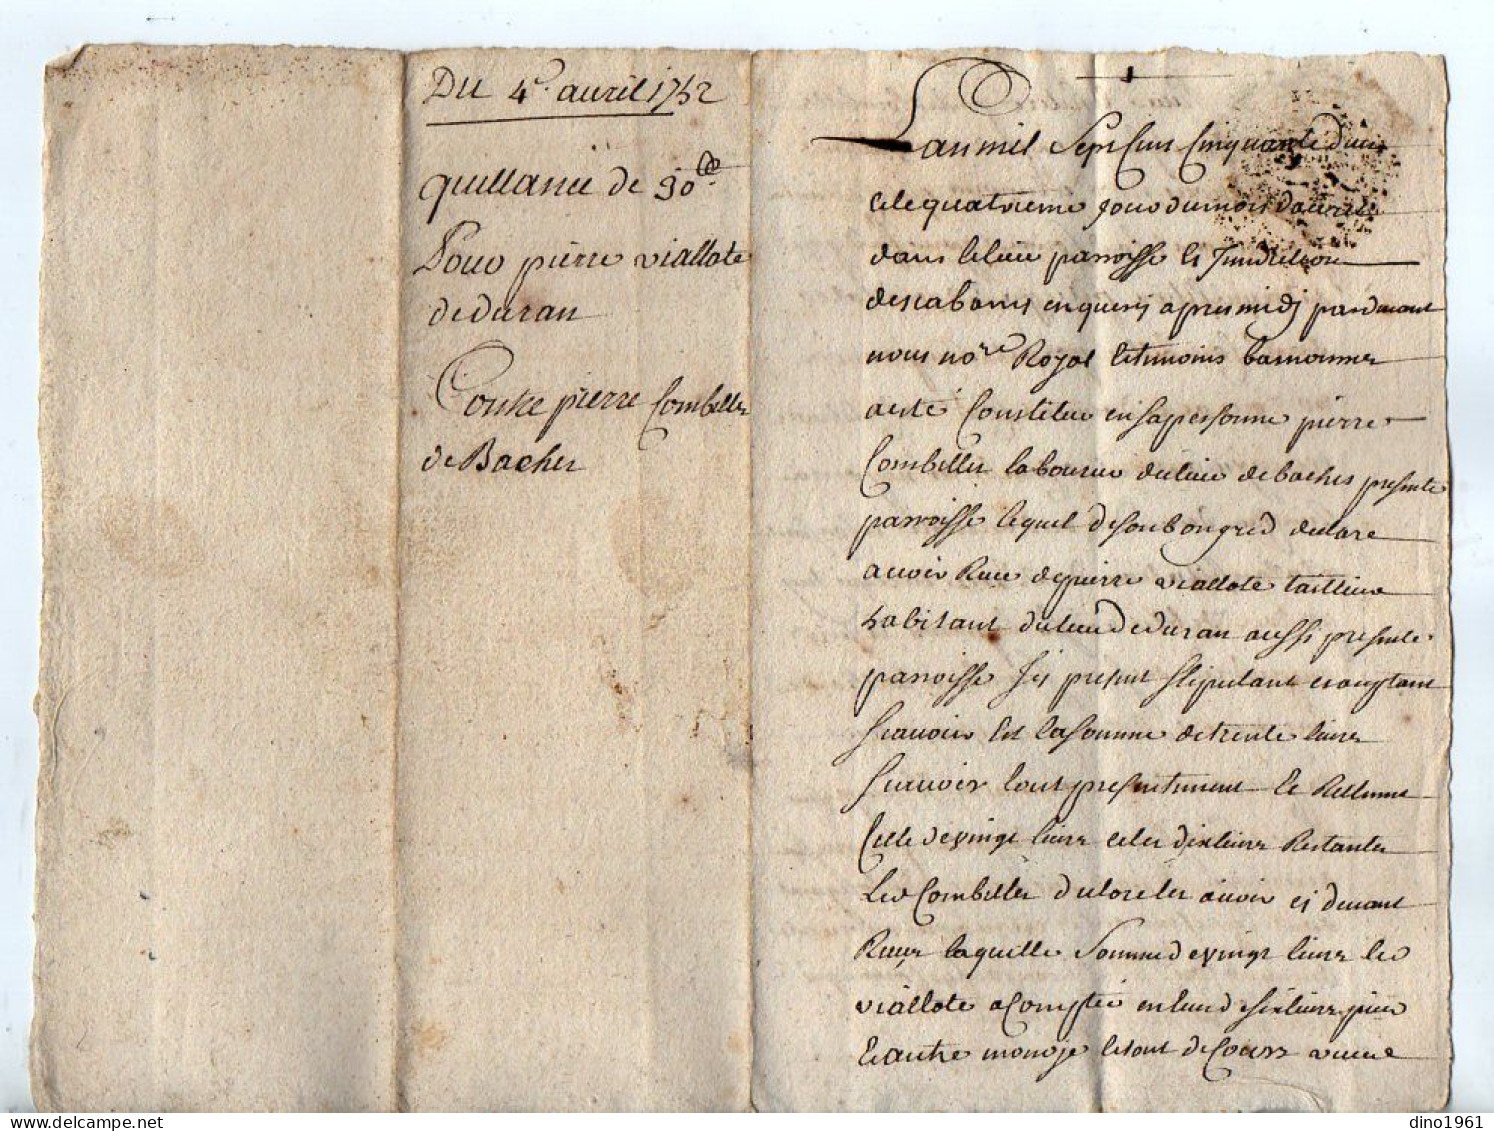 DU 4e. auril 1752
quittance de 30ll.
Pour pierre viallote
de duran
Contre pierre Combelles
de Baches
1
Lan mil Sept Cens Cinquante deux
et le quatrieme jour du mois dauril
dans le lieu parroisse et
descabanes en quercy apres midy pardeuant
nous nore Royal et temoins bas nommes
a esté Constitué en sa personne pierre
Combelles laboureur du lieu de baches presente
parroisse lequel de son bon gred declare
auoir Receu de pierre viallote tailleur
habitant du lieu de duran aussi presente
parroisse Icy present stipulant et acceptant
scauoir est la somme de trente liures
scauoir tout presentement et Reellement
Celle de vingt liures et les dix liures Restantes
Led Combelles declare les auoir cy deuant
Receus laquelle Somme de vingt liures led
viallote a Comptée en un de six liures piece
et autre monoje et tout de Cours
dino1961